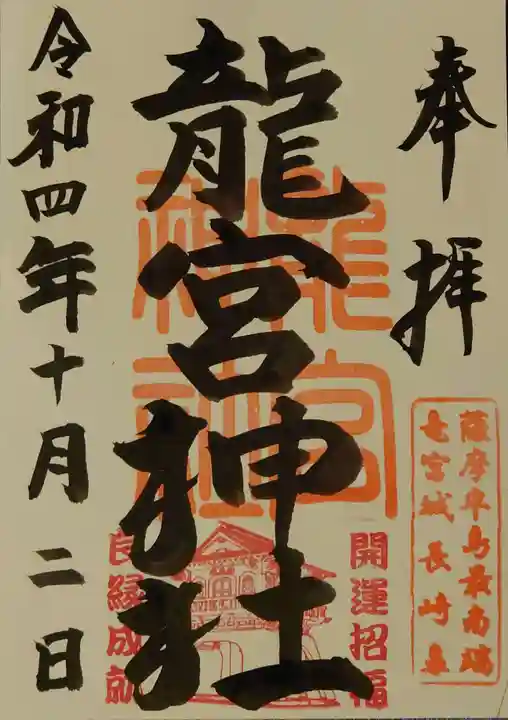 奉拝
薩摩半島最南端
竜宮城長崎鼻
開運招福
龍宮神社
龍宮
神社
良縁成就
令和四年十月二日